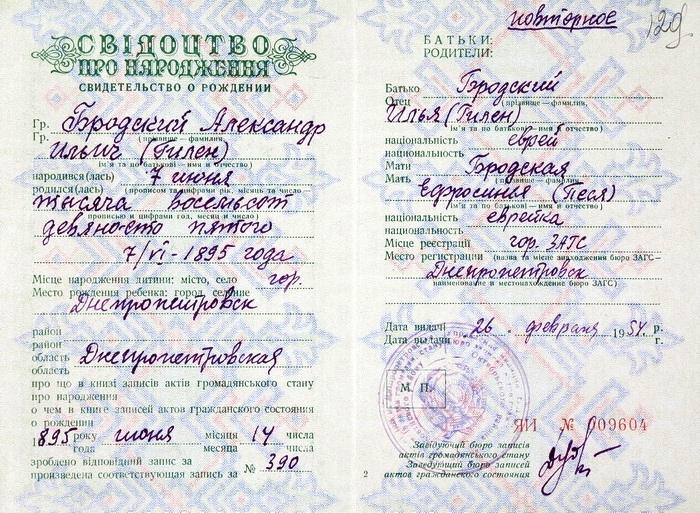 СВІДОЦТВО
ПРО НАРОДЖЕННЯ
СВИДЕТЕЛЬСТВО О РОЖДЕНИИ
Гр. Бродский Александр
Гр. (прізвище — фамилия,
Ильич (Гилен)
ім'я та по батькові — имя и отчество)
народився(лась) 7 июня
родился(лась) (прописом та цифрами рік, місяць та число —
тысяча восемьсот
прописью и цифрами год, месяц и число)
девяносто пятого
7/VI - 1895 года
Місце народження дитини: місто, село гор.
Место рождения ребенка: город, селение
Днепропетровск
район
район
область Днепропетровская
область
про що в книзі записів актів громадянського стану
про народження
о чем в книге записей актов гражданского состояния
о рождении
1895 року июня місяця 14 числа
года месяца числа
зроблено відповідний запис за № 390
произведена соответствующая запись за
повторное
129
БАТЬКИ:
РОДИТЕЛИ:
Батько Бродский
Отец (прізвище — фамилия,
Илья (Гилен)
ім'я та по батькові — имя и отчество)
національність еврей
национальность
Мати Бродская
Мать (прізвище — фамилия,
Ефросинья (Песя)
ім'я та по батькові — имя и отчество)
національність еврейка
национальность
Місце реєстрації гор. ЗАГС
Место регистрации (назва та місце знаходження бюро ЗАГС —
Днепропетровск
наименование и местонахождение бюро ЗАГС)
Дата видачі 26 февраля 1954 р.
Дата выдачи г.
М. П.
ЯИ № 009604
Завідуючий бюро записів
актів громадянського стану
Заведующий бюро записей
актов гражданского состояния
2